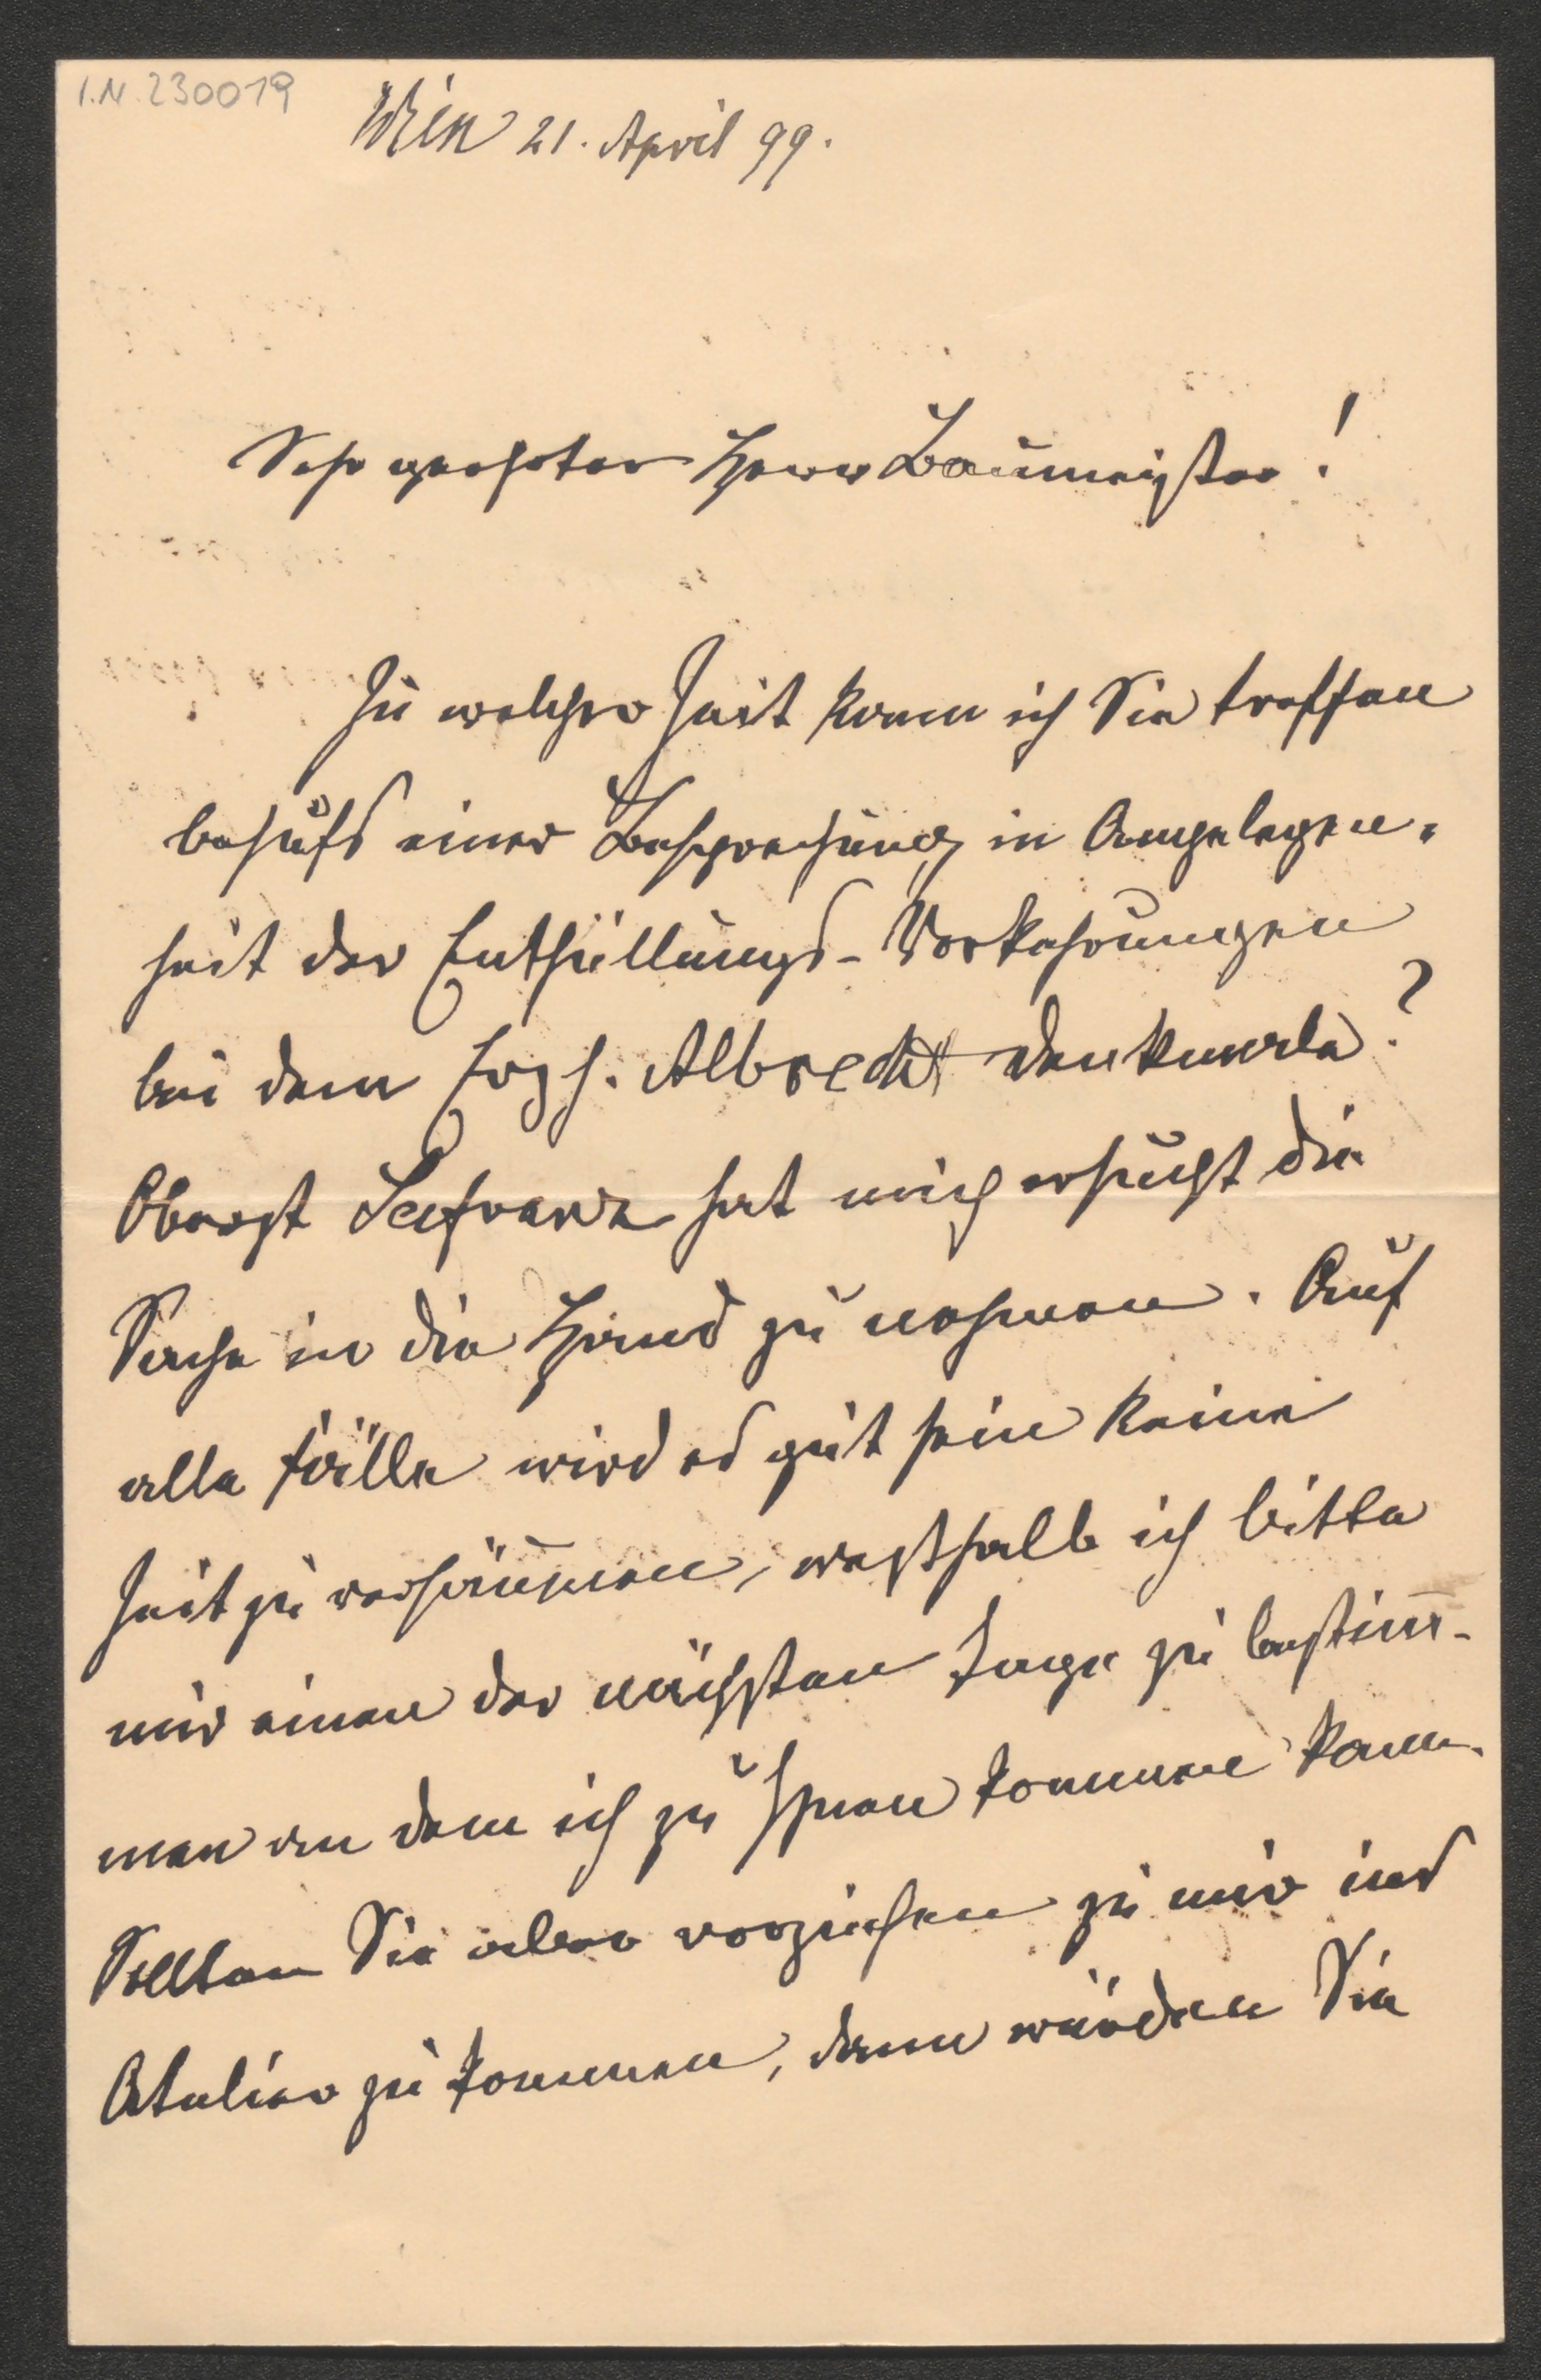 I.N. 230019
Wien 21. April 99.
Sehr geehrter Herr Baumeister!
Zu welcher Zeit kann ich Sie treffen
behufs einer Besprechung in Angelegen-
heit der Enthüllungs-Vorkehrungen
bei dem Erzh. Albrecht Denkmale?
Oberst hat mich ersucht die
Sache in die Hand zu nehmen. Auf
alle Fälle wird es gut sein keine
Zeit zu versäumen, weßhalb ich bitte
mir einen der nächsten Tage zu bestim̅-
men an dem ich zu Ihnen kommen kann.
Sollten Sie aber vorziehen zu mir ins
Atelier zu kommen, dann würden Sie